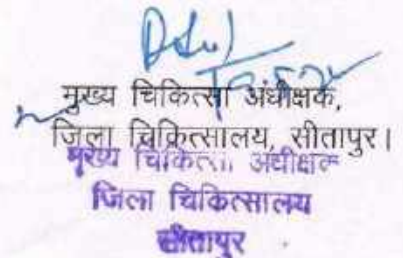 मुख्य चिकित्सा अधीक्षक,
जिला चिकित्सालय, सीतापुर।
मुख्य चिकित्सा अधीक्षक
जिला चिकित्सालय
सीतापुर